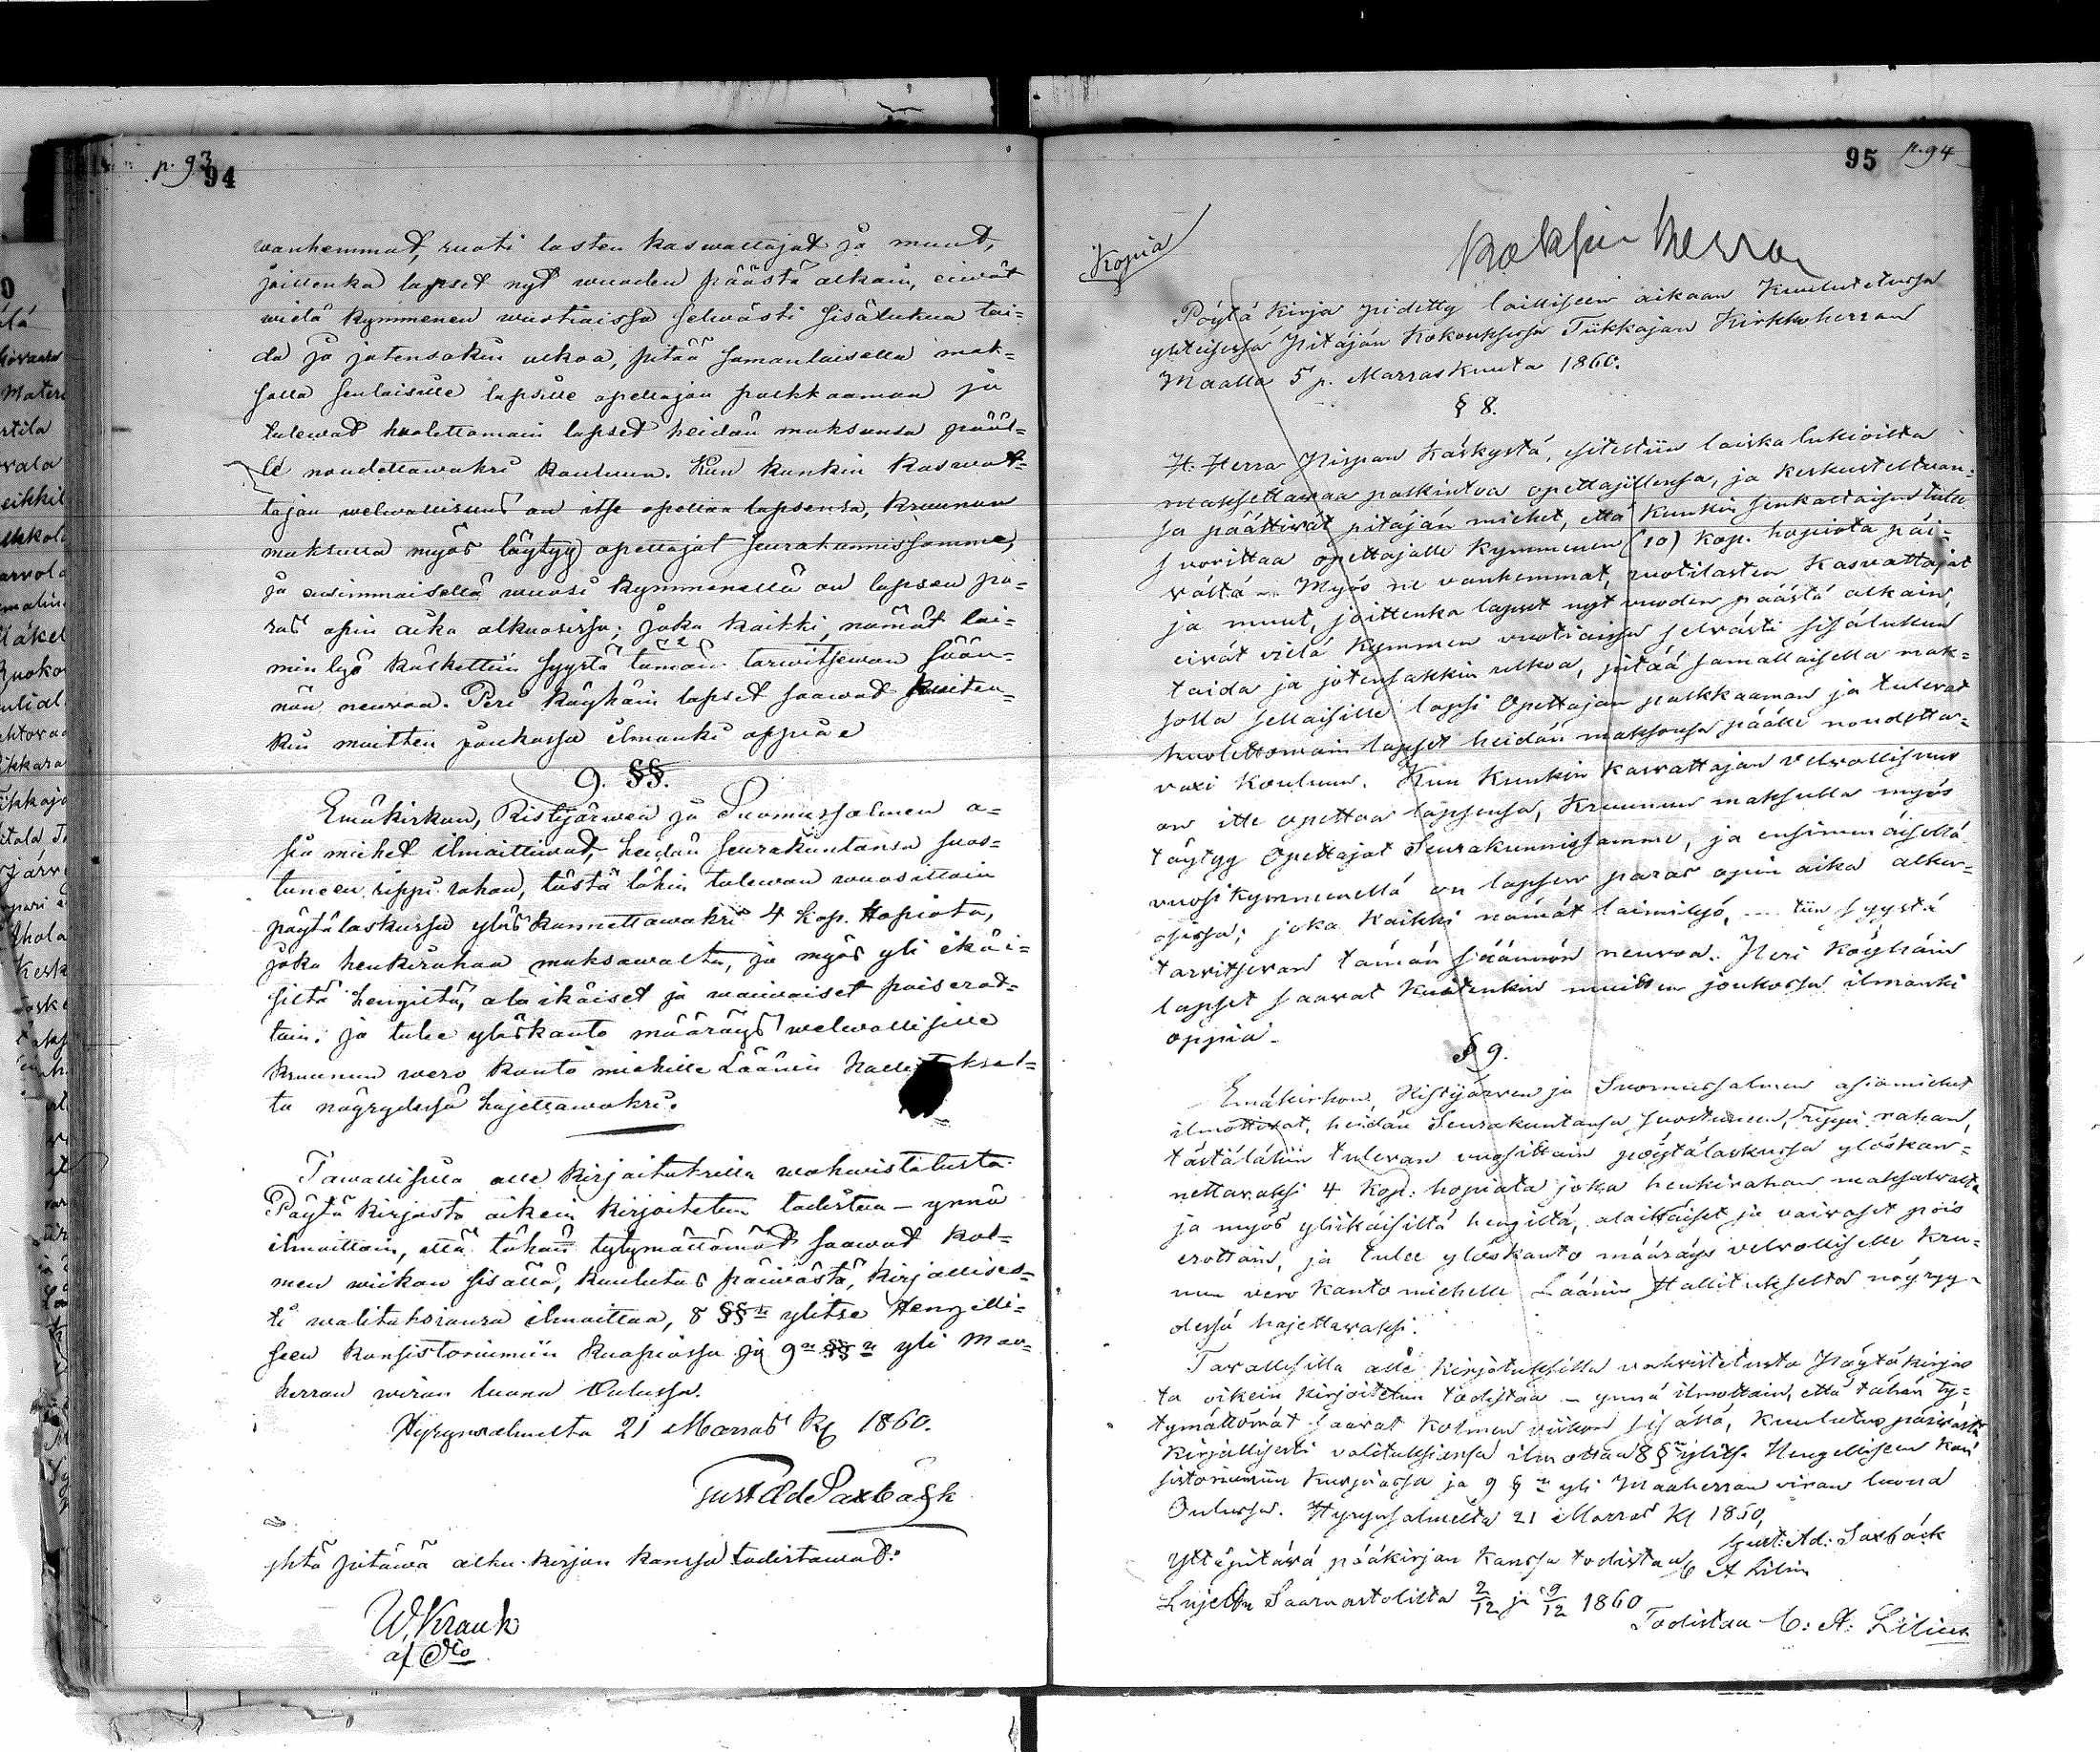 p. 93
94
wanhemmad, ruoti lasten kaswattajat ja muut,
joittenka lapset nyt wuoden päästä alkain, eiwät
wielä kymmenen wuotiaissa selwästi sisälukua tai=
da ja jotensakin ulkoa, pitää samanlaisella mak=
solla senlaisille lapsille opettajan palkkaaman ja
tulewad huolettomain lapset heidän maksunsa pääl=
le noudettawaksi kouluun. Kun kunkin kaswat=
tajan welwallisuus on itse opettaa lapsensa, kruunun
maksulla myös löytyy opettajat seurakunnissamme,
ja ensimmaisellä wuosi kymmenellä on lapsen pa=
ras opin aika alkuosissa; joka kaikki nämät lai=
min lyö kutsuttiin syystä tämän tarwitsewan sään=
nön neuwoa. Peri köyhäin lapset saawad kuiten=
kin muitten joukossa ilmanki oppia
9. §§.
Emäkirkon, Ristijärwen ja Suomussalmen a=
sia miehet ilmoittiwad, heidän seurakuntansa suos=
tuneen rippi rahan, tästä lähin tulewan wuosittain
pöytälaskussa ylös kannettawaksi 4 kop. Hopiata,
joka henkirahaa maksawalta, ja myös yli ikäi=
siltä hengiltä, ala ikäiset ja waiwaiset poiserot=
tain; ja tulee ylöskanto määräys welwollisille
kruunun wero kanto miehille Läänin halli ksel=
ta nöyrydessä hajettawaksi.
Tawallisilla alle kirjoituksilla wahwistetusta
Pöytä kirjasta oikein kirjoitetun todistaa – ynnä
ilmoittain, että tähän tytymättömät saawad kol=
men wiikon sisällä, kuulutus päiwästä, kirjallises=
ti walituksiansa ilmoittaa, 8 §§n ylitse Hengelli=
seen konsistoriumiin Kuopiossa ja 9n §§n yli Maa=
herran wiran luona Oulussa.
Hyrynsalmelta 21 Marras K 1860.
Gust Ad Saxbäck
yhtä pitäwä alku-kirjan kanssa todistawad:
W. Krank
Kopia
95 p. 94
Herra
Pöytä Kirja pidetty lailliseen aikaan Kuulutetussa
yhteisessä Pitäjän Kokouksessa Tiikkajan Kirkkoherran
Maalla 5 p. Marraskuuta 1860.
§ 8.
H. Herra Piispan Käskystä, esitettiin laiska lukioilta
maksettawaa palkintoa opettajillensa, ja keskusteltuan=
sa päättivät pitäjän miehet, että kunkin senkaltaisen tulee
suorittaa opettajalle kymmenen (10) kop. hopiata päi=
vältä – Myös ne vanhemmat, ruotilasten kasvattajat
ja muut, joittenka lapset nyt vuoden päästä alkain,
eivät vielä kymmen vuotiaissa selvästi sisälukua
taida ja jotensakkin ulkoa, pitää samallaisella mak=
solla sellaisille lapsi Opettajan palkkaaman ja tulevat
huolettomain lapset heidän maksonsa päälle noudetta=
vaxi kouluun. Kun kunkin kasvattajan velvollisuus
on itte opettaa lapsensa, kruunun maksulla myös
löytyy Opettajat Seurakunnissamme, ja ensimmäisellä
vuosikymmenellä on lapsen paras opin aika alku=
osissa; joka kaikki nämät laimilyö, .... tiin syystä
tarvitsevan tämän säännön neuvoa. Peri köyhäin
lapset saavat kuitenkin muitten joukossa ilmanki
oppia.
§ 9.
Emäkirkon, Ristijärven ja Suomussalmen asiamiehet
ilmottivat, heidän Seurakuntansa suostuneen, rippi rahan,
tästälähin tulevan vuosittain pöytälaskussa ylöskan=
nettavaksi 4 Kop: hopiata joka henkirahan maksavalta
ja myös yliikäisiltä hengiltä, alaikäiset ja vaivaset pois
erottain, ja tulee ylöskanto määräys velvolliselle kru=
nun vero kanto miehelle Läänin Hallitukselta nöyryy=
dessä hajettavaksi.
Tavallisilla alle kirjotuksilla vahvistetusta Pöytäkirjas
ta oikein kirjoitetun todistaa – ynnä ilmottain, että tähän ty=
tymättömät saavat kolmen viikon sisällä, kuulutus päivästä
kirjallisesti valituksiansa ilmottaa 8 §n ylitse Hengelliseen Kon
sistoriumiin Kuopiossa ja 9 §n yli Maaherran viran luona
Oulussa. Hyrynsalmelta 21 Marras K 1860,
Gust: Ad: Saxbäck
Yttäpitävä pääkirjan kanssa todistaa C A Lilius
Luettu Saarnastolilta 2/12 ja 9/12 1860
Todistaa C: A: Lilius